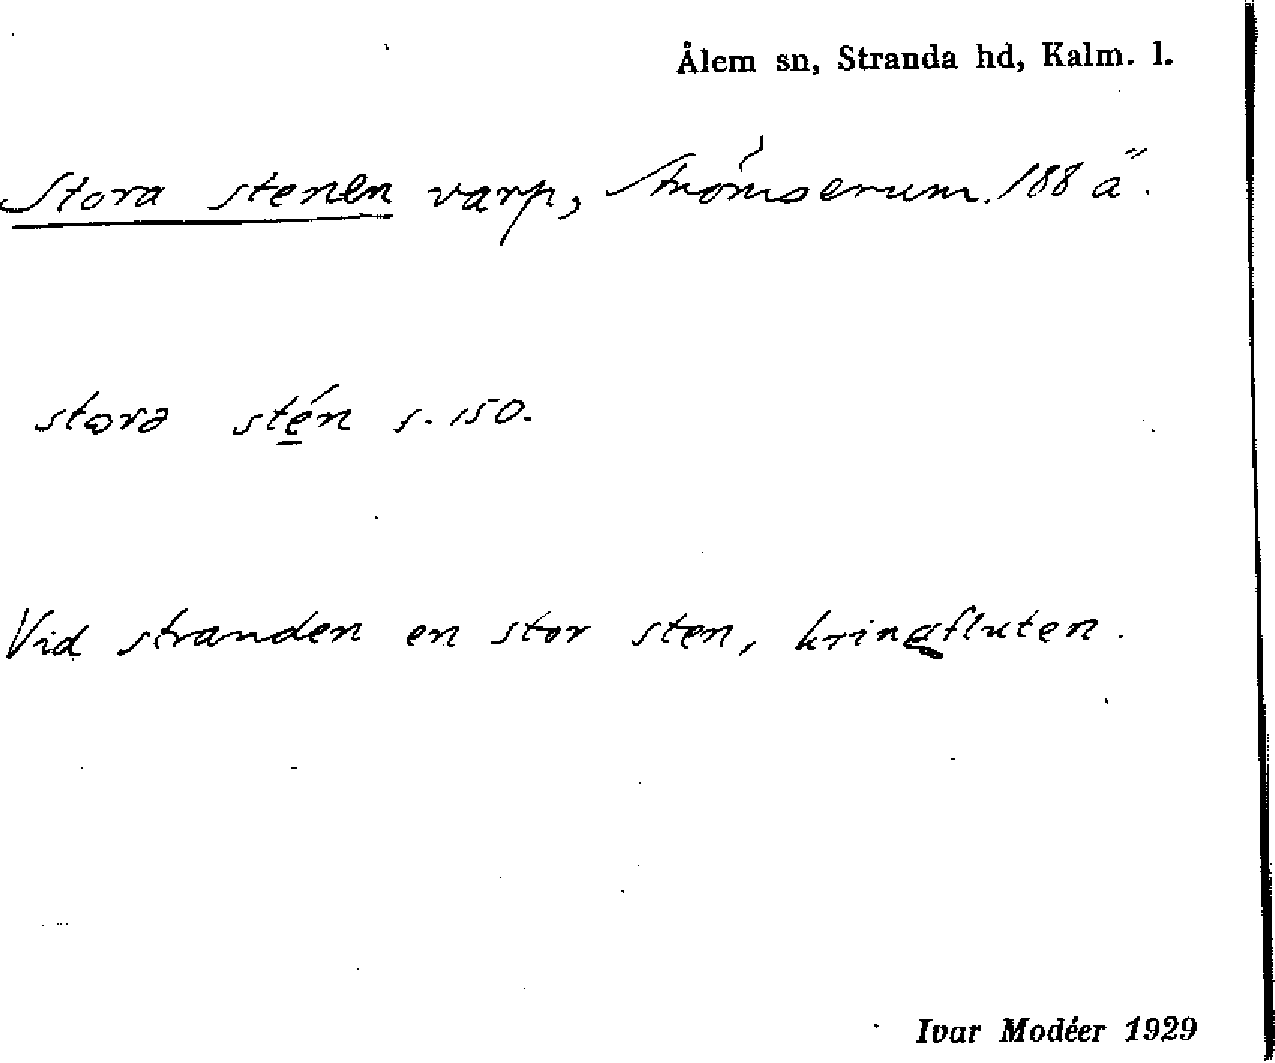 Ålem sn, Stranda hd, Kalm. l.
Stora stenen varp, Strömserum. 188 ä.
storə stén s. 150.
Vid stranden en stor sten, kringfluten.
Ivar Modéer 1929